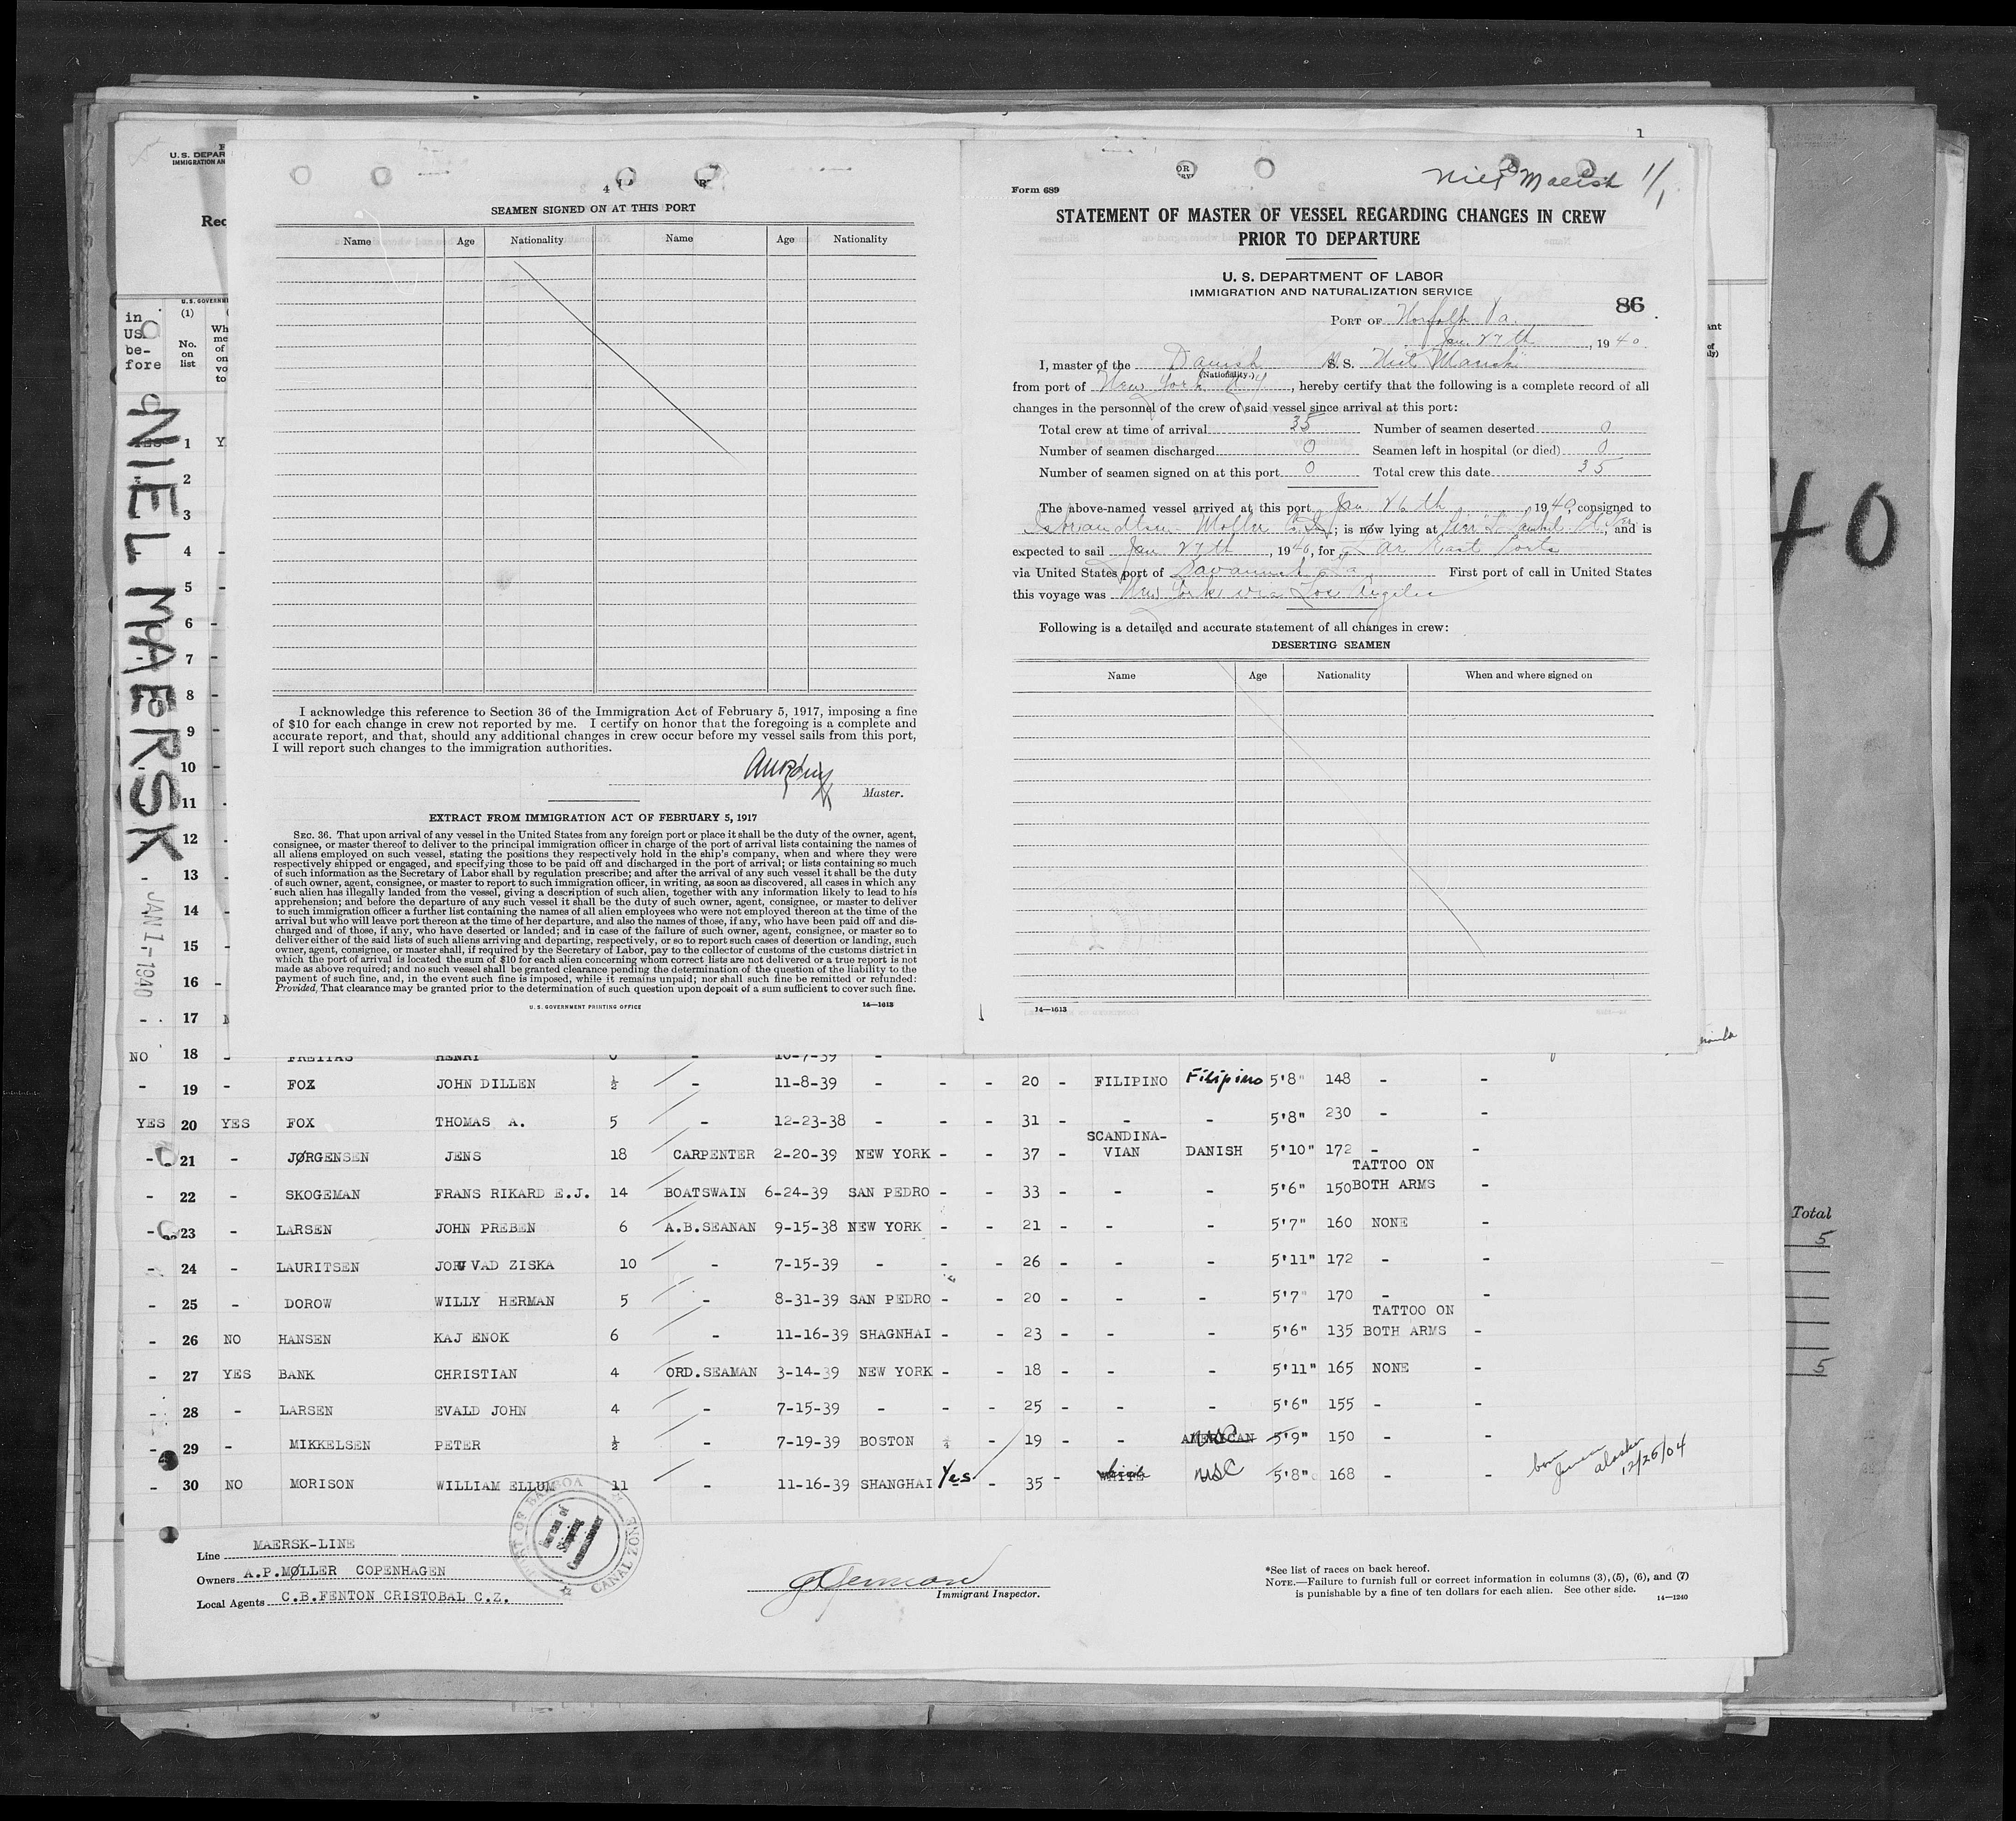 U.S. DEPAR
IMMIGRATION AN
Rec
U.S. GOVERNM
in
US
be-
fore
(1)
No.
on
list
Wh
me
of
on
vo
to
NIEL MAERSK
JAN 1-1940
40
Total
5
5
4
SEAMEN SIGNED ON AT THIS PORT
Name Age Nationality Name Age Nationality
I acknowledge this reference to Section 36 of the Immigration Act of February 5, 1917, imposing a fine
of $10 for each change in crew not reported by me. I certify on honor that the foregoing is a complete and
accurate report, and that, should any additional changes in crew occur before my vessel sails from this port,
I will report such changes to the immigration authorities.
Master.
EXTRACT FROM IMMIGRATION ACT OF FEBRUARY 5, 1917
SEC. 36. That upon arrival of any vessel in the United States from any foreign port or place it shall be the duty of the owner, agent,
consignee, or master thereof to deliver to the principal immigration officer in charge of the port of arrival lists containing the names of
all aliens employed on such vessel, stating the positions they respectively hold in the ship's company, when and where they were
respectively shipped or engaged, and specifying those to be paid off and discharged in the port of arrival; or lists containing so much
of such information as the Secretary of Labor shall by regulation prescribe; and after the arrival of any such vessel it shall be the duty
of such owner, agent, consignee, or master to report to such immigration officer, in writing, as soon as discovered, all cases in which any
such alien has illegally landed from the vessel, giving a description of such alien, together with any information likely to lead to his
apprehension; and before the departure of any such vessel it shall be the duty of such owner, agent, consignee, or master to deliver
to such immigration officer a further list containing the names of all alien employees who were not employed thereon at the time of the
arrival but who will leave port thereon at the time of her departure, and also the names of those, if any, who have been paid off and dis-
charged and of those, if any, who have deserted or landed; and in case of the failure of such owner, agent, consignee, or master so to
deliver either of the said lists of such aliens arriving and departing, respectively, or so to report such cases of desertion or landing, such
owner, agent, consignee, or master shall, if required by the Secretary of Labor, pay to the collector of customs of the customs district in
which the port of arrival is located the sum of $10 for each alien concerning whom correct lists are not delivered or a true report is not
made as above required; and no such vessel shall be granted clearance pending the determination of the question of the liability to the
payment of such fine, and, in the event such fine is imposed, while it remains unpaid; nor shall such fine be remitted or refunded:
Provided, That clearance may be granted prior to the determination of such question upon deposit of a sum sufficient to cover such fine.
U. S. GOVERNMENT PRINTING OFFICE 14—1613
1
Form 689
Niel Maersk 1/1
STATEMENT OF MASTER OF VESSEL REGARDING CHANGES IN CREW
PRIOR TO DEPARTURE
U. S. DEPARTMENT OF LABOR
IMMIGRATION AND NATURALIZATION SERVICE
86
PORT OF Norfolk Va.
Jan 27th, 1940.
I, master of the Danish M. S. Niel Maersk
(Nationality.)
from port of New York N Y, hereby certify that the following is a complete record of all
changes in the personnel of the crew of said vessel since arrival at this port:
Total crew at time of arrival 35 Number of seamen deserted 0
Number of seamen discharged 0 Seamen left in hospital (or died) 0
Number of seamen signed on at this port 0 Total crew this date 35
The above-named vessel arrived at this port Jan 26th, 1940, consigned to
Isbrandtsen-Moller Co.; is now lying at Pier, and is
expected to sail Jan 27th, 1940, for Far East Ports
via United States port of Savannah Ga. First port of call in United States
this voyage was New York via Los Angeles
Following is a detailed and accurate statement of all changes in crew:
DESERTING SEAMEN
Name Age Nationality When and where signed on
14—1613
1 Y
2
3
4 -
5 -
6 -
7 -
8 -
9 -
10 -
11
12
13
14
15
16 -
17
NO 18 - FREITAS HENRI - 10-7-39 -
- 19 - FOX JOHN DILLEN ½ - 11-8-39 - - - 20 - FILIPINO Filipino 5'8" 148 - -
YES 20 YES FOX THOMAS A. 5 - 12-23-38 - - - 31 - - - 5'8" 230 - -
- 21 - JØRGENSEN JENS 18 CARPENTER 2-20-39 NEW YORK - - 37 - SCANDINA-VIAN DANISH 5'10" 172 - -
- 22 - SKOGEMAN FRANS RIKARD E.J. 14 BOATSWAIN 6-24-39 SAN PEDRO - - 33 - - - 5'6" 150 TATTOO ON BOTH ARMS -
- 23 - LARSEN JOHN PREBEN 6 A.B.SEANAN 9-15-38 NEW YORK - - 21 - - - 5'7" 160 NONE -
- 24 - LAURITSEN VAD ZISKA 10 - 7-15-39 - - - 26 - - - 5'11" 172 - -
- 25 - DOROW WILLY HERMAN 5 - 8-31-39 SAN PEDRO - - 20 - - - 5'7" 170 - -
- 26 NO HANSEN KAJ ENOK 6 - 11-16-39 SHAGNHAI - - 23 - - - 5'6" 135 TATTOO ON BOTH ARMS -
- 27 YES BANK CHRISTIAN 4 ORD.SEAMAN 3-14-39 NEW YORK - - 18 - - - 5'11" 165 NONE -
- 28 - LARSEN EVALD JOHN 4 - 7-15-39 - - - 25 - - - 5'6" 155 - -
- 29 - MIKKELSEN PETER ½ - 7-19-39 BOSTON - 19 - - AMERICAN USC 5'9" 150 - -
- 30 NO MORISON WILLIAM ELLUM 11 - 11-16-39 SHANGHAI Yes - 35 - WHITE USC 5'8" 168 - - born Juneau Alaska 12/25/04
Line MAERSK-LINE
Owners A.P.MØLLER COPENHAGEN
Local Agents C.B.FENTON CRISTOBAL C.Z.
PORT OF BALBOA
CANAL ZONE
Immigrant Inspector.
*See list of races on back hereof.
NOTE.—Failure to furnish full or correct information in columns (3), (5), (6), and (7)
is punishable by a fine of ten dollars for each alien. See other side.
14—1240